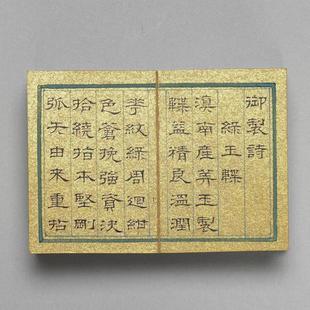 御製詩
綠玉韘
滇南産美玉製
韘益精良溫潤
紋綠周迴紺
色蒼挽強資決
拾繞指本堅剛
弧矢由來重拈